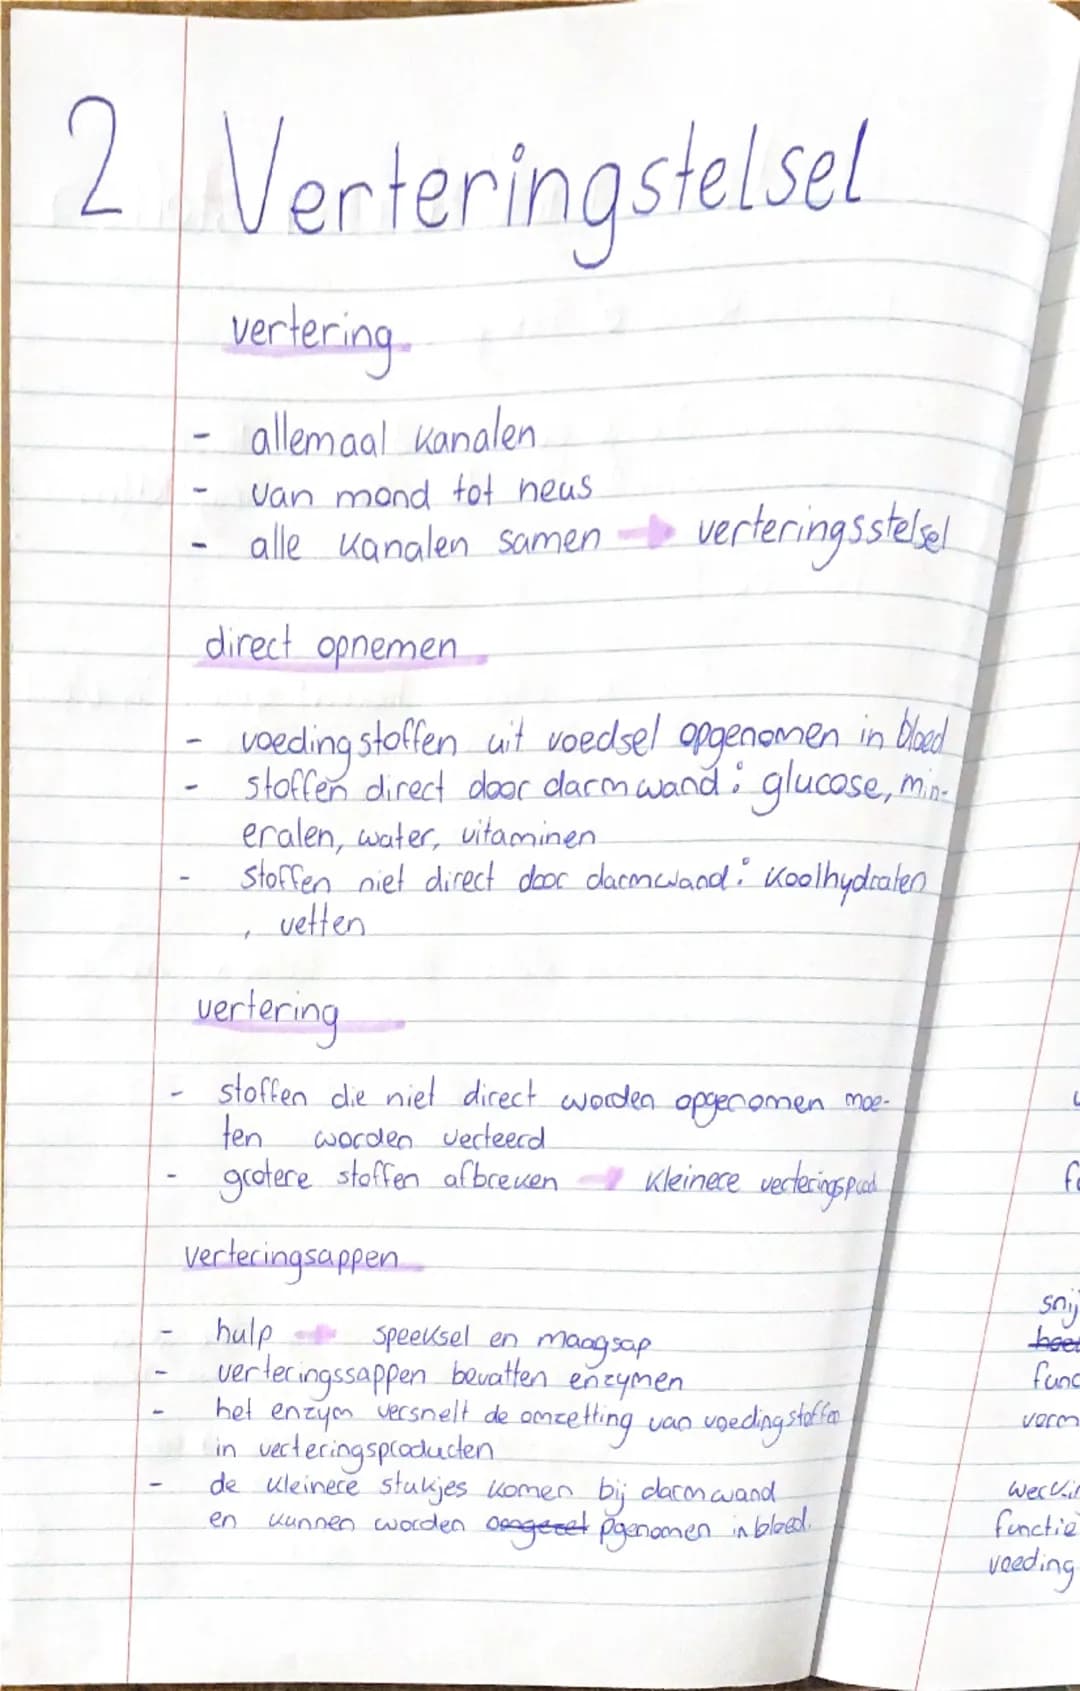 2 Verteringstelsel
vertering
- allemaal kanalen
- van mond tot neus
- alle kanalen samen → verteringsstelsel
direct opnemen
- voedingstoffen uit voedsel opgenomen in bloed
- stoffen direct door darmwand: glucose, min-
eralen, water, vitaminen
- stoffen niet direct door darmwand: koolhydraten
, vetten
vertering
- stoffen die niet direct worden opgenomen moe-
ten worden verteerd
- grotere stoffen afbreken → kleinere verteringsprod
verteringsappen
- hulp → speeksel en maagsap
- verteringssappen bevatten enzymen
- het enzym versnelt de omzetting van voedingstoffen
in verteringsproducten
- de kleinere stukjes komen bij darmwand
en kunnen worden pgenomen in bloed.
snij
func
vorm
functie
voeding